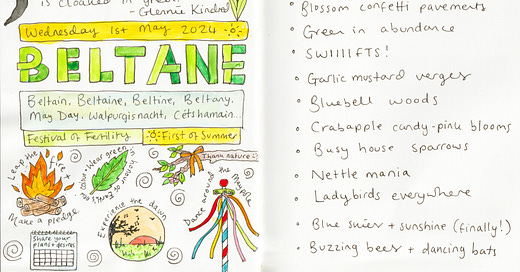 is cloaked in green."
- Glennie Kindred
Wednesday 1st May 2024
BELTANE
Beltain, Beltaine, Beltine, Beltany,
May Day, Walpurgisnacht, Cétshamain...
Festival of Fertility
First of Summer
Leap the fire
Make a pledge.
Wear green
Thank nature
Dance around the Maypole
Experience the dawn
Share your
plans + desires
Blossom confetti pavements
Green in abundance
SWIIIIFTS!
Garlic mustard verges
Bluebell woods
Crabapple candy-pink blooms
Busy house sparrows
Nettle mania
Ladybirds everywhere
Blue skies + sunshine (finally!)
Buzzing bees + dancing bats